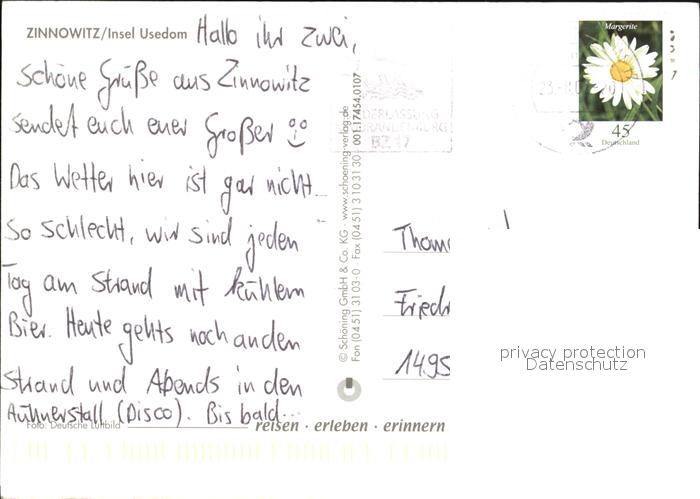 ZINNOWITZ/Insel Usedom Hallo ihr zwei,
schöne Grüße aus Zinnowitz
sendet euch euer Großer
Das Wetter hier ist gar nicht
so schlecht, wir sind jeden
Tag am Strand mit kühlem
Bier. Heute gehts noch an den
Strand und Abends in den
Hühnerstall (Disco). Bis bald...
Foto: Deutsche Luftbild
reisen · erleben · erinnern
© Schöning GmbH & Co. KG · www.schoening-verlag.de
Fon (04 51) 31 03-0 · Fax (04 51) 3 10 31 30 · 001.17454.0107
DERLASSUNG
BRANDENBURG
BZ 17
Margerite
45
Deutschland
Thom
Friedr
1495
privacy protection
Datenschutz